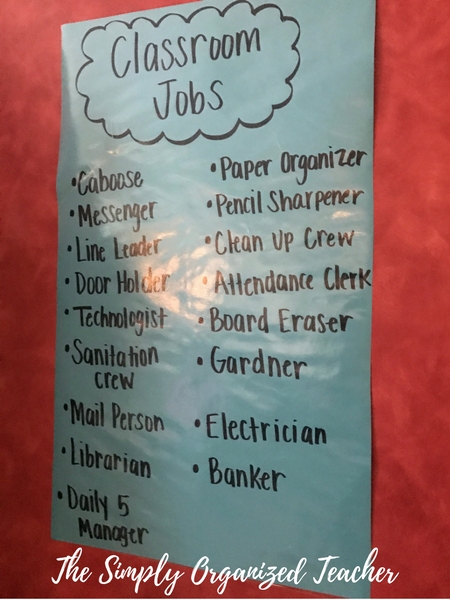 Classroom
Jobs
•Caboose
•Messenger
•Line Leader
•Door Holder
•Technologist
•Sanitation
crew
•Mail Person
•Librarian
•Daily 5
Manager
•Paper Organizer
•Pencil Sharpener
•Clean Up Crew
•Attendance Clerk
•Board Eraser
•Gardner
•Electrician
•Banker
The Simply Organized Teacher